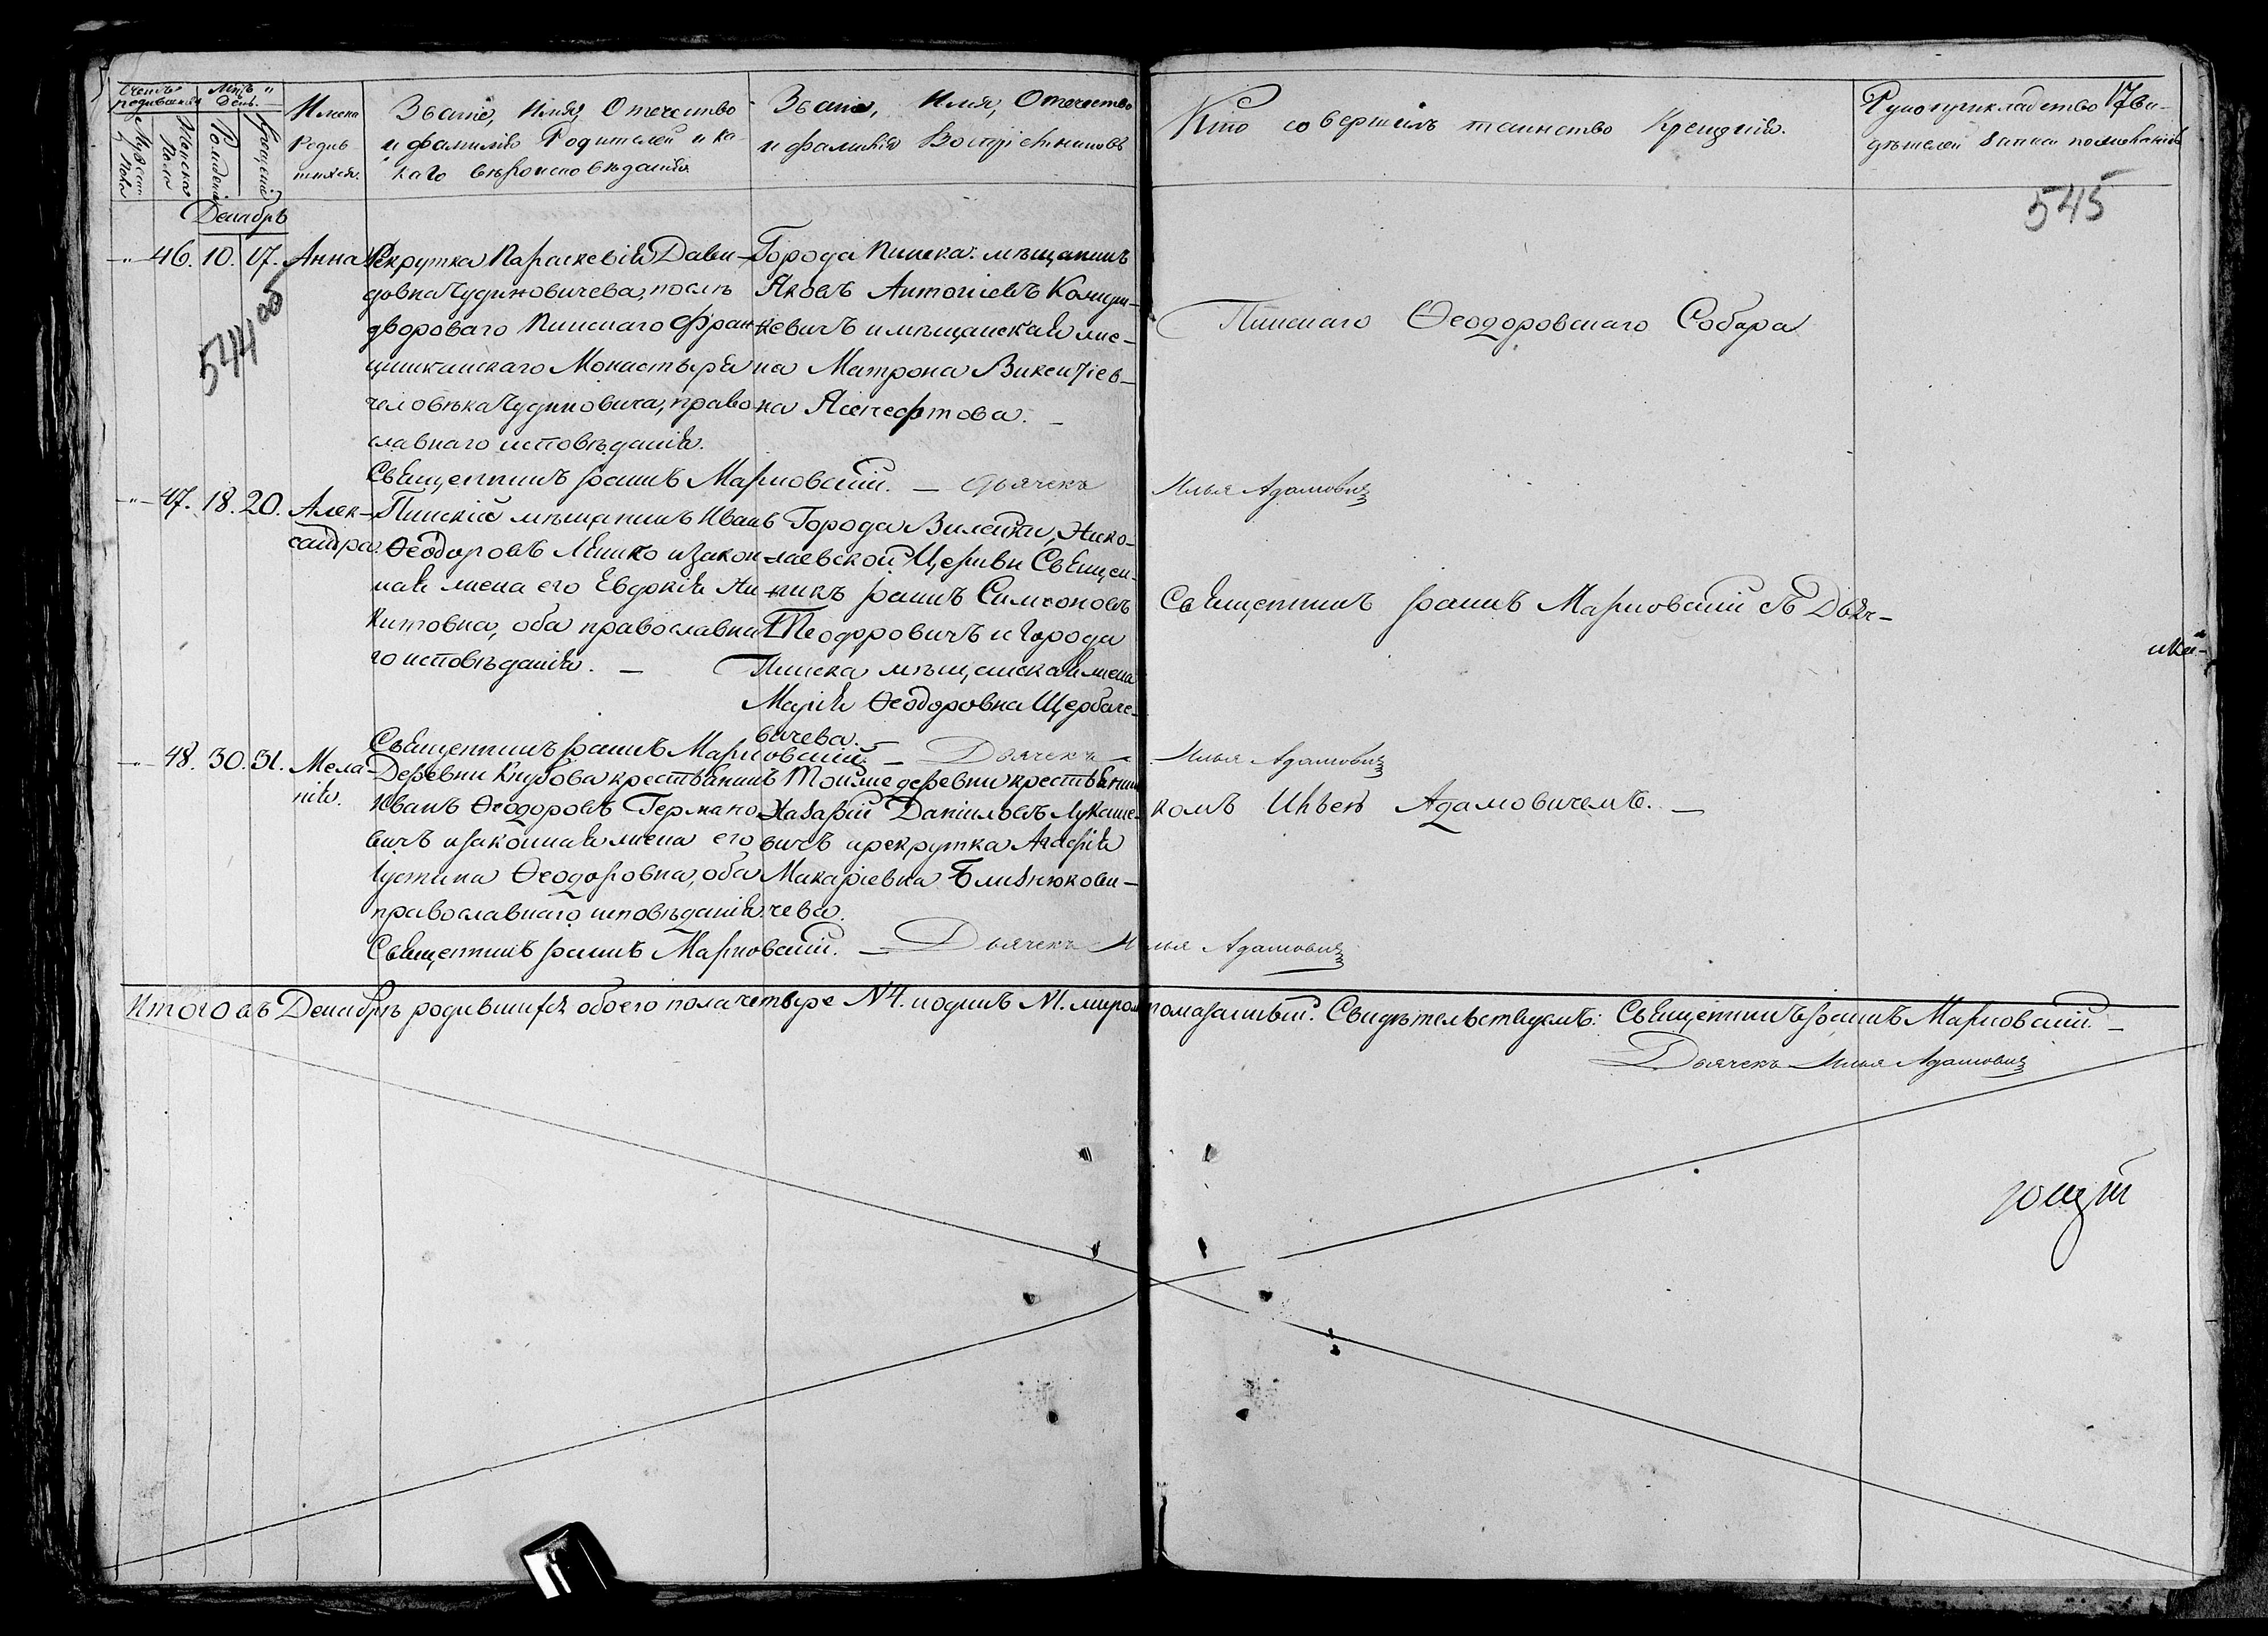 Счетъ родившихся
Мѣсц. и День.
Мужеска Пола
Женска Пола
Рожденія
Крещенія
Имена Родив-
шихся.
Званіе, Имя, Отечество
и фамилія Родителей и ка-
каго вѣроисповѣданія
Званіе, Имя, Отечество
и фамилія Воспріемниковъ
Кто совершилъ таинство Крещенія.
Рукоприкладство сви-
дѣтелей записи по желанію
17
545
544 об
Декабрь
-"- 46. 10. 17. Анна
Рекрутка Параскевія Дави-
довна Чудиновичева, послѣ
двороваго Пинскаго Фран-
цишканскаго Монастыря
человѣка Чудиновича, право-
славнаго исповѣданія.
Города Пинска: мѣщанинъ
Яковъ Антоніевъ
кевичъ и мѣщанская же-
на Матрона Викентіев-
на
Пинскаго Ѳеодоровскаго Собора
Священникъ Іоаннъ Марновскій. — Дьячекъ Илья Адамовичъ
-"- 47. 18. 20. Алек-
сандра
Пинскій мѣщанинъ Иванъ
Ѳеодоровъ Ляшко и закон-
ная жена его Евдокія Ни-
китовна, оба православна-
го исповѣданія. —
Города Вилейки, Нико-
лаевской Церкви Священ-
никъ Іоаннъ Симеоновъ
Теодоровичъ и Города
Пинска мѣщанская жена
Марія Ѳеодоровна Щербаче-
вичева. —
Священникъ Іоаннъ Марновскій съ Дьяч-
Священникъ Іоаннъ Марновскій. — Дьячекъ Илья Адамовичъ
-"- 48. 30. 31. Мела-
нія.
Деревни Кнубова крестьянинъ
Иванъ Ѳеодоровъ Германо-
вичъ и законная жена его
Іустина Ѳеодоровна, оба
православнаго исповѣданія.
Той же деревни крестьянинъ
Назарій Даніиловъ Лукаше-
вичъ и рекрутка Агафія
Макаріевна Близнюкови-
чева.
комъ Ильею Адамовичемъ. —
Священникъ Іоаннъ Марновскій. — Дьячекъ Илья Адамовичъ
Итого въ Декабрѣ родившихся обоего пола четыре N 4. и одинъ N 1. миропомазанный. Свидѣтельствуемъ: Священникъ Іоаннъ Марновскій. —
Дьячекъ Илья Адамовичъ